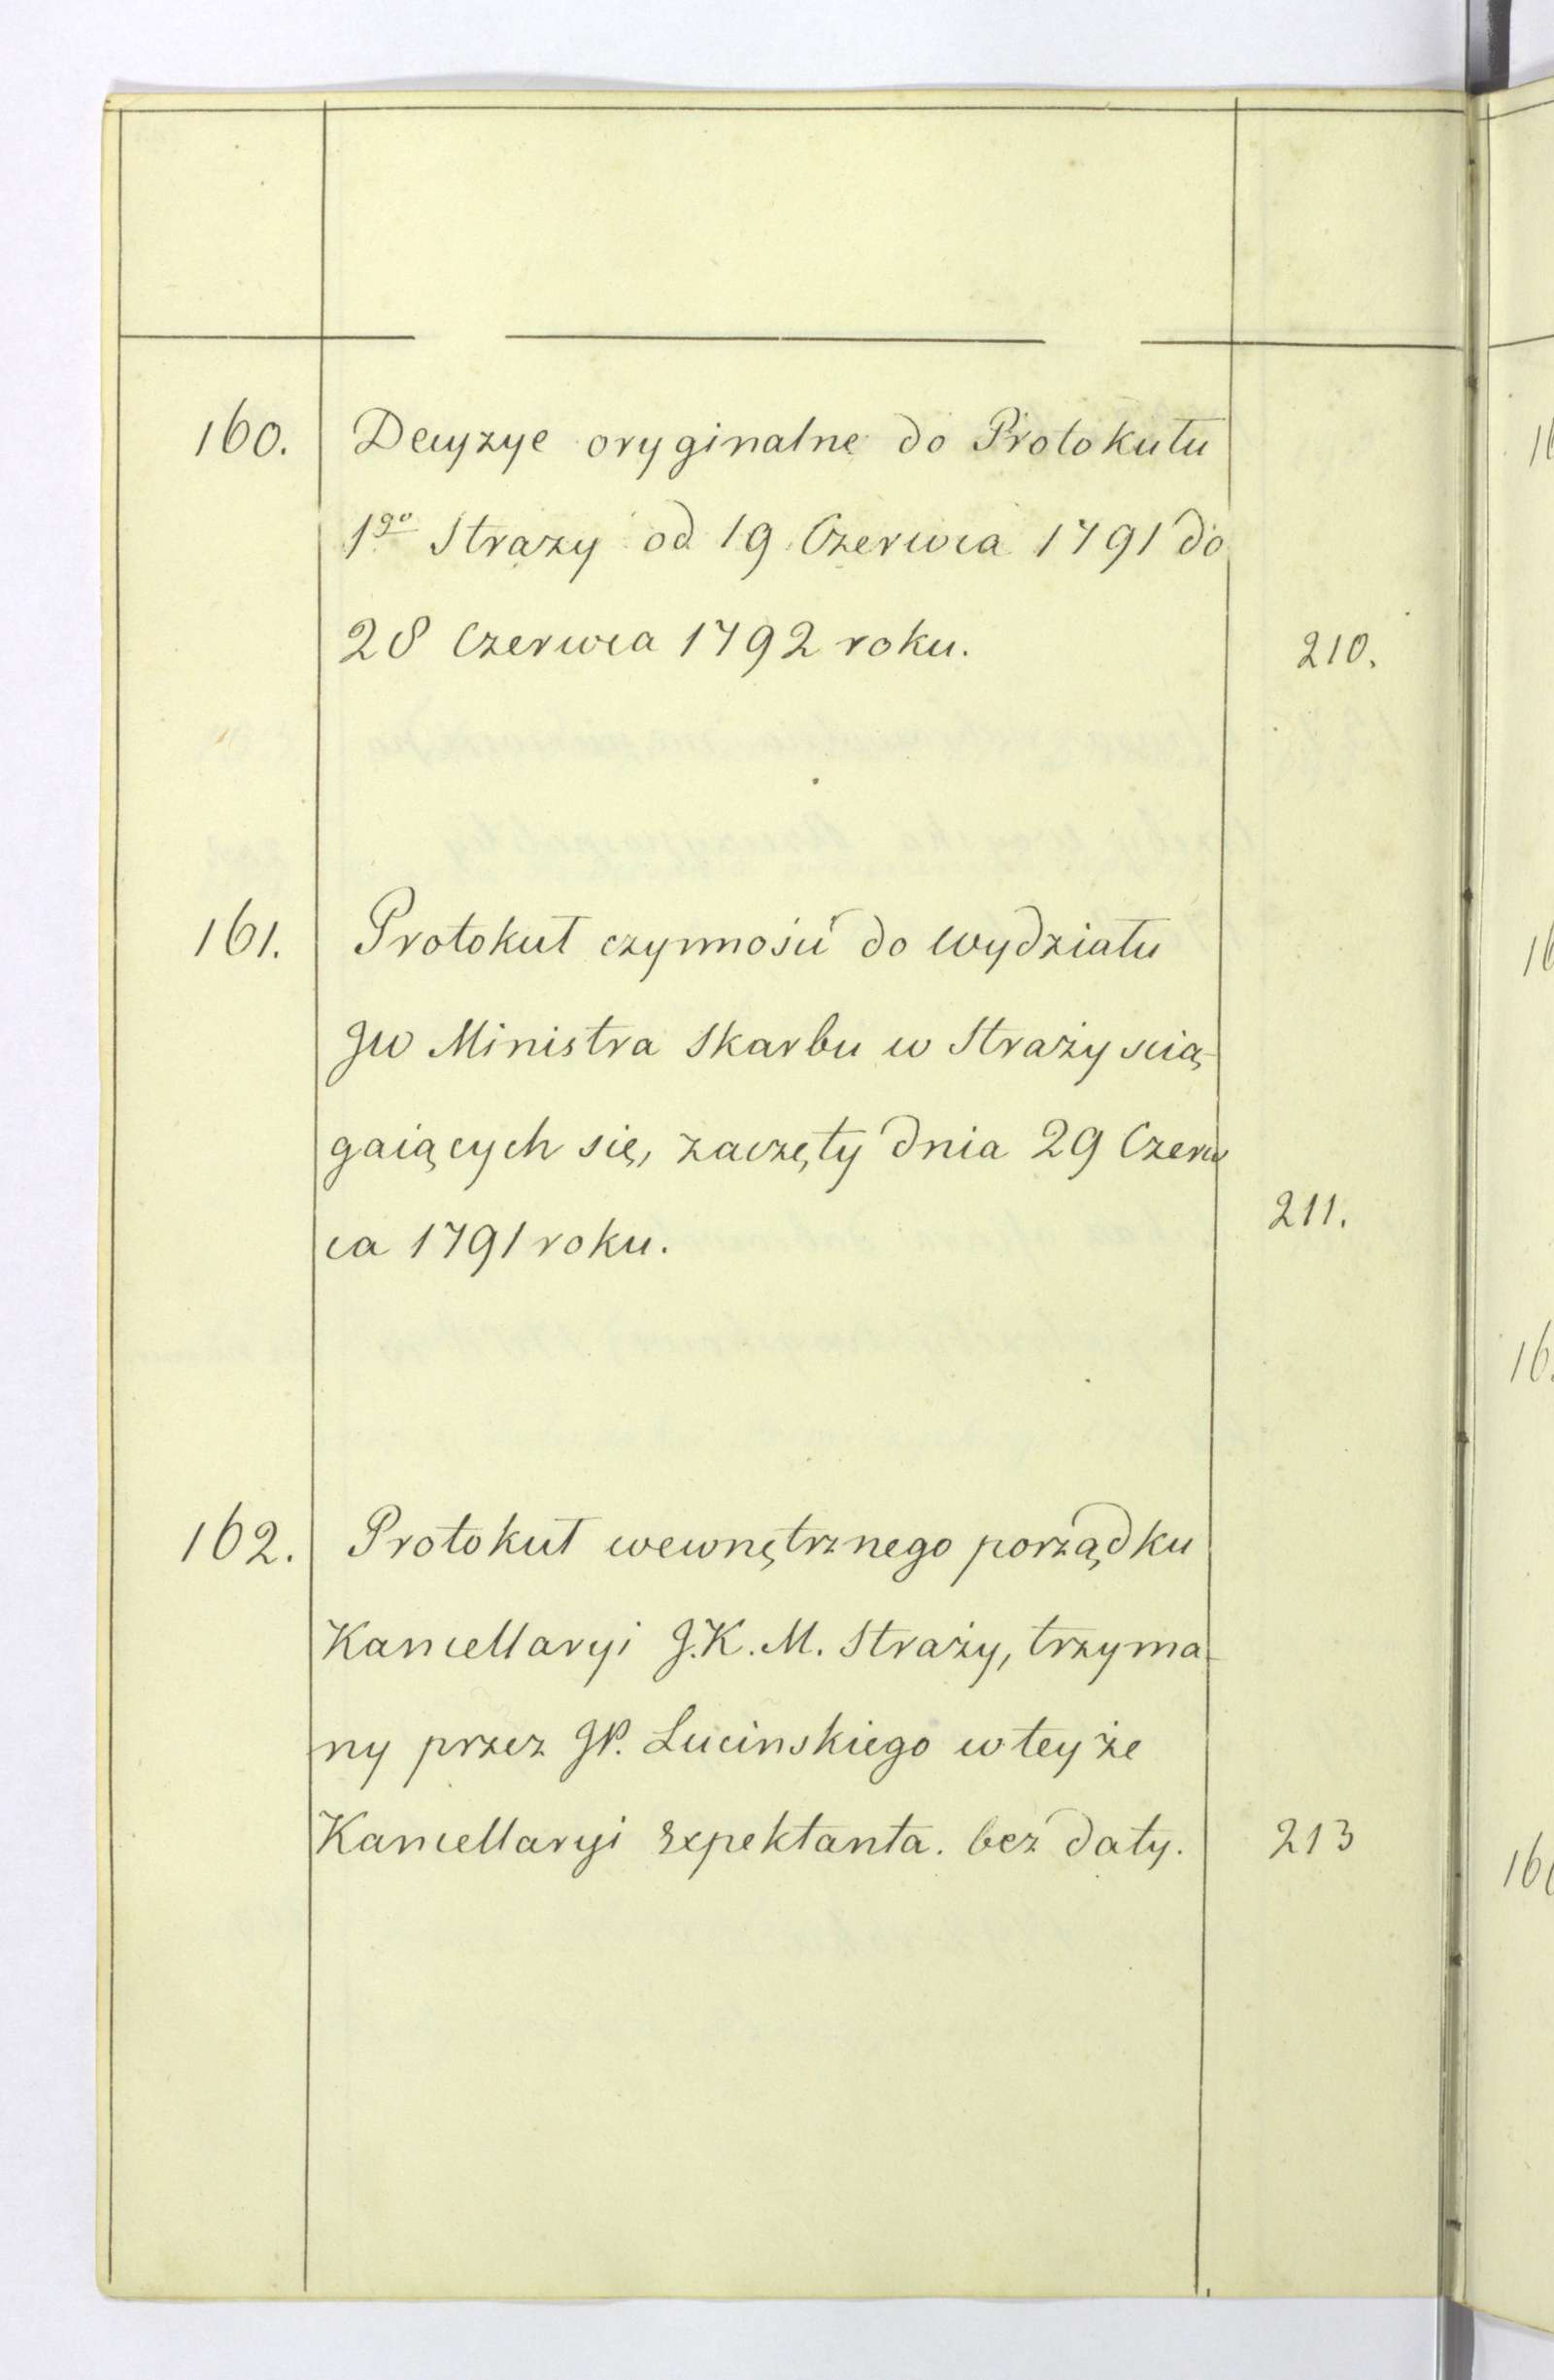 160. Decyzye oryginalne do Protokułu
1go Strazy od 19 Czerwca 1791 do
28 Czerwca 1792 roku. 210.
161. Protokuł czynności do Wydziału
JW Ministra Skarbu w Straży scią-
gaiących się, zaczęty dnia 29 Czerw
ca 1791 roku. 211.
162. Protokuł wewnętrznego porządku
Kancellaryi J.K.M. Straży, trzyma-
ny przez JP. Lucinskiego w teyże
Kancellaryi Expektanta. bez daty. 213